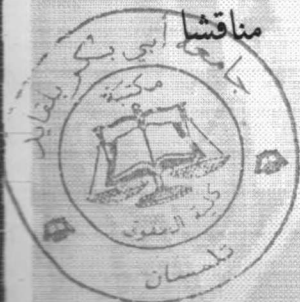 مناقشا
جامعة أبي بكر بلقايد
مكتبة
كلية الحقوق
تلمسان